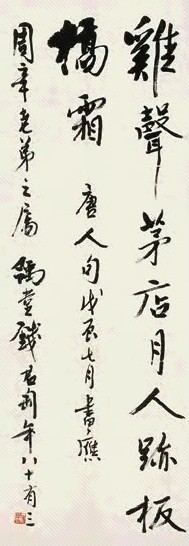 雞聲茅店月人跡板
橋霜 唐人句戊辰七月書應
周老弟之屬 豫堂錢君匋年八十有三